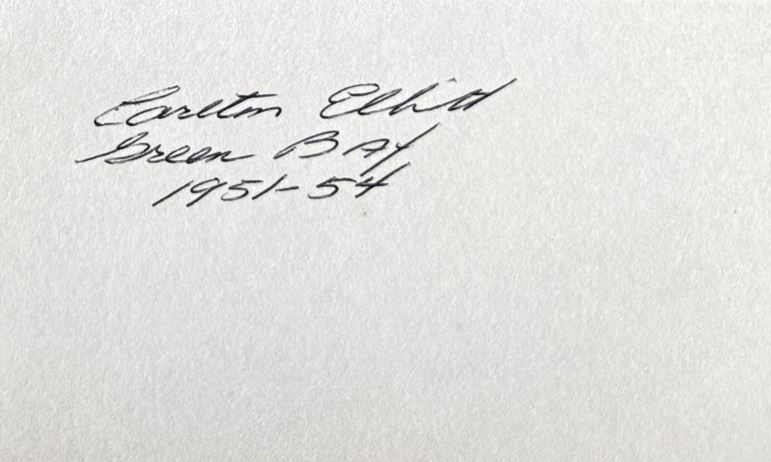 Carlton Elliott
Green BAy
1951-54